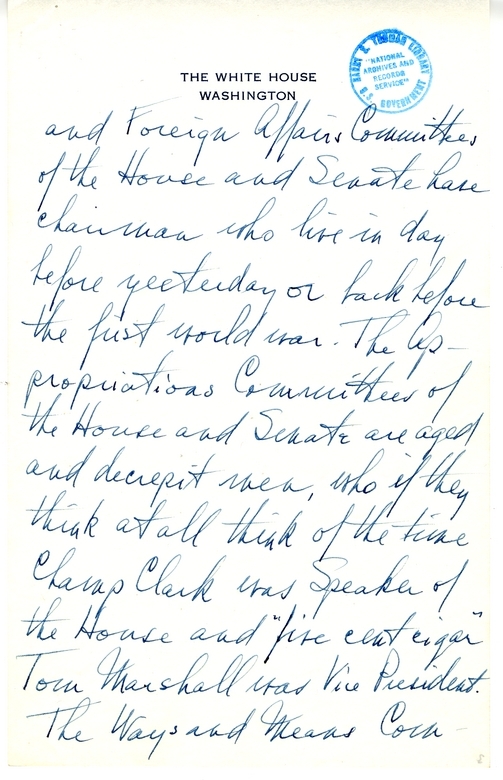 THE WHITE HOUSE
WASHINGTON
HARRY S. TRUMAN LIBRARY
"NATIONAL
ARCHIVES AND
RECORDS
SERVICE"
U.S. GOVERNMENT
and Foreign Affairs Committees
of the House and Senate have
chairman who live in day
before yesterday or back before
the first world war. The Ap-
propriations Committees of
the House and Senate are aged
and decrepit men, who if they
think at all think of the time
Champ Clark was Speaker of
the House and "five cent cigar"
Tom Marshall was Vice President.
The Ways and Means Com-